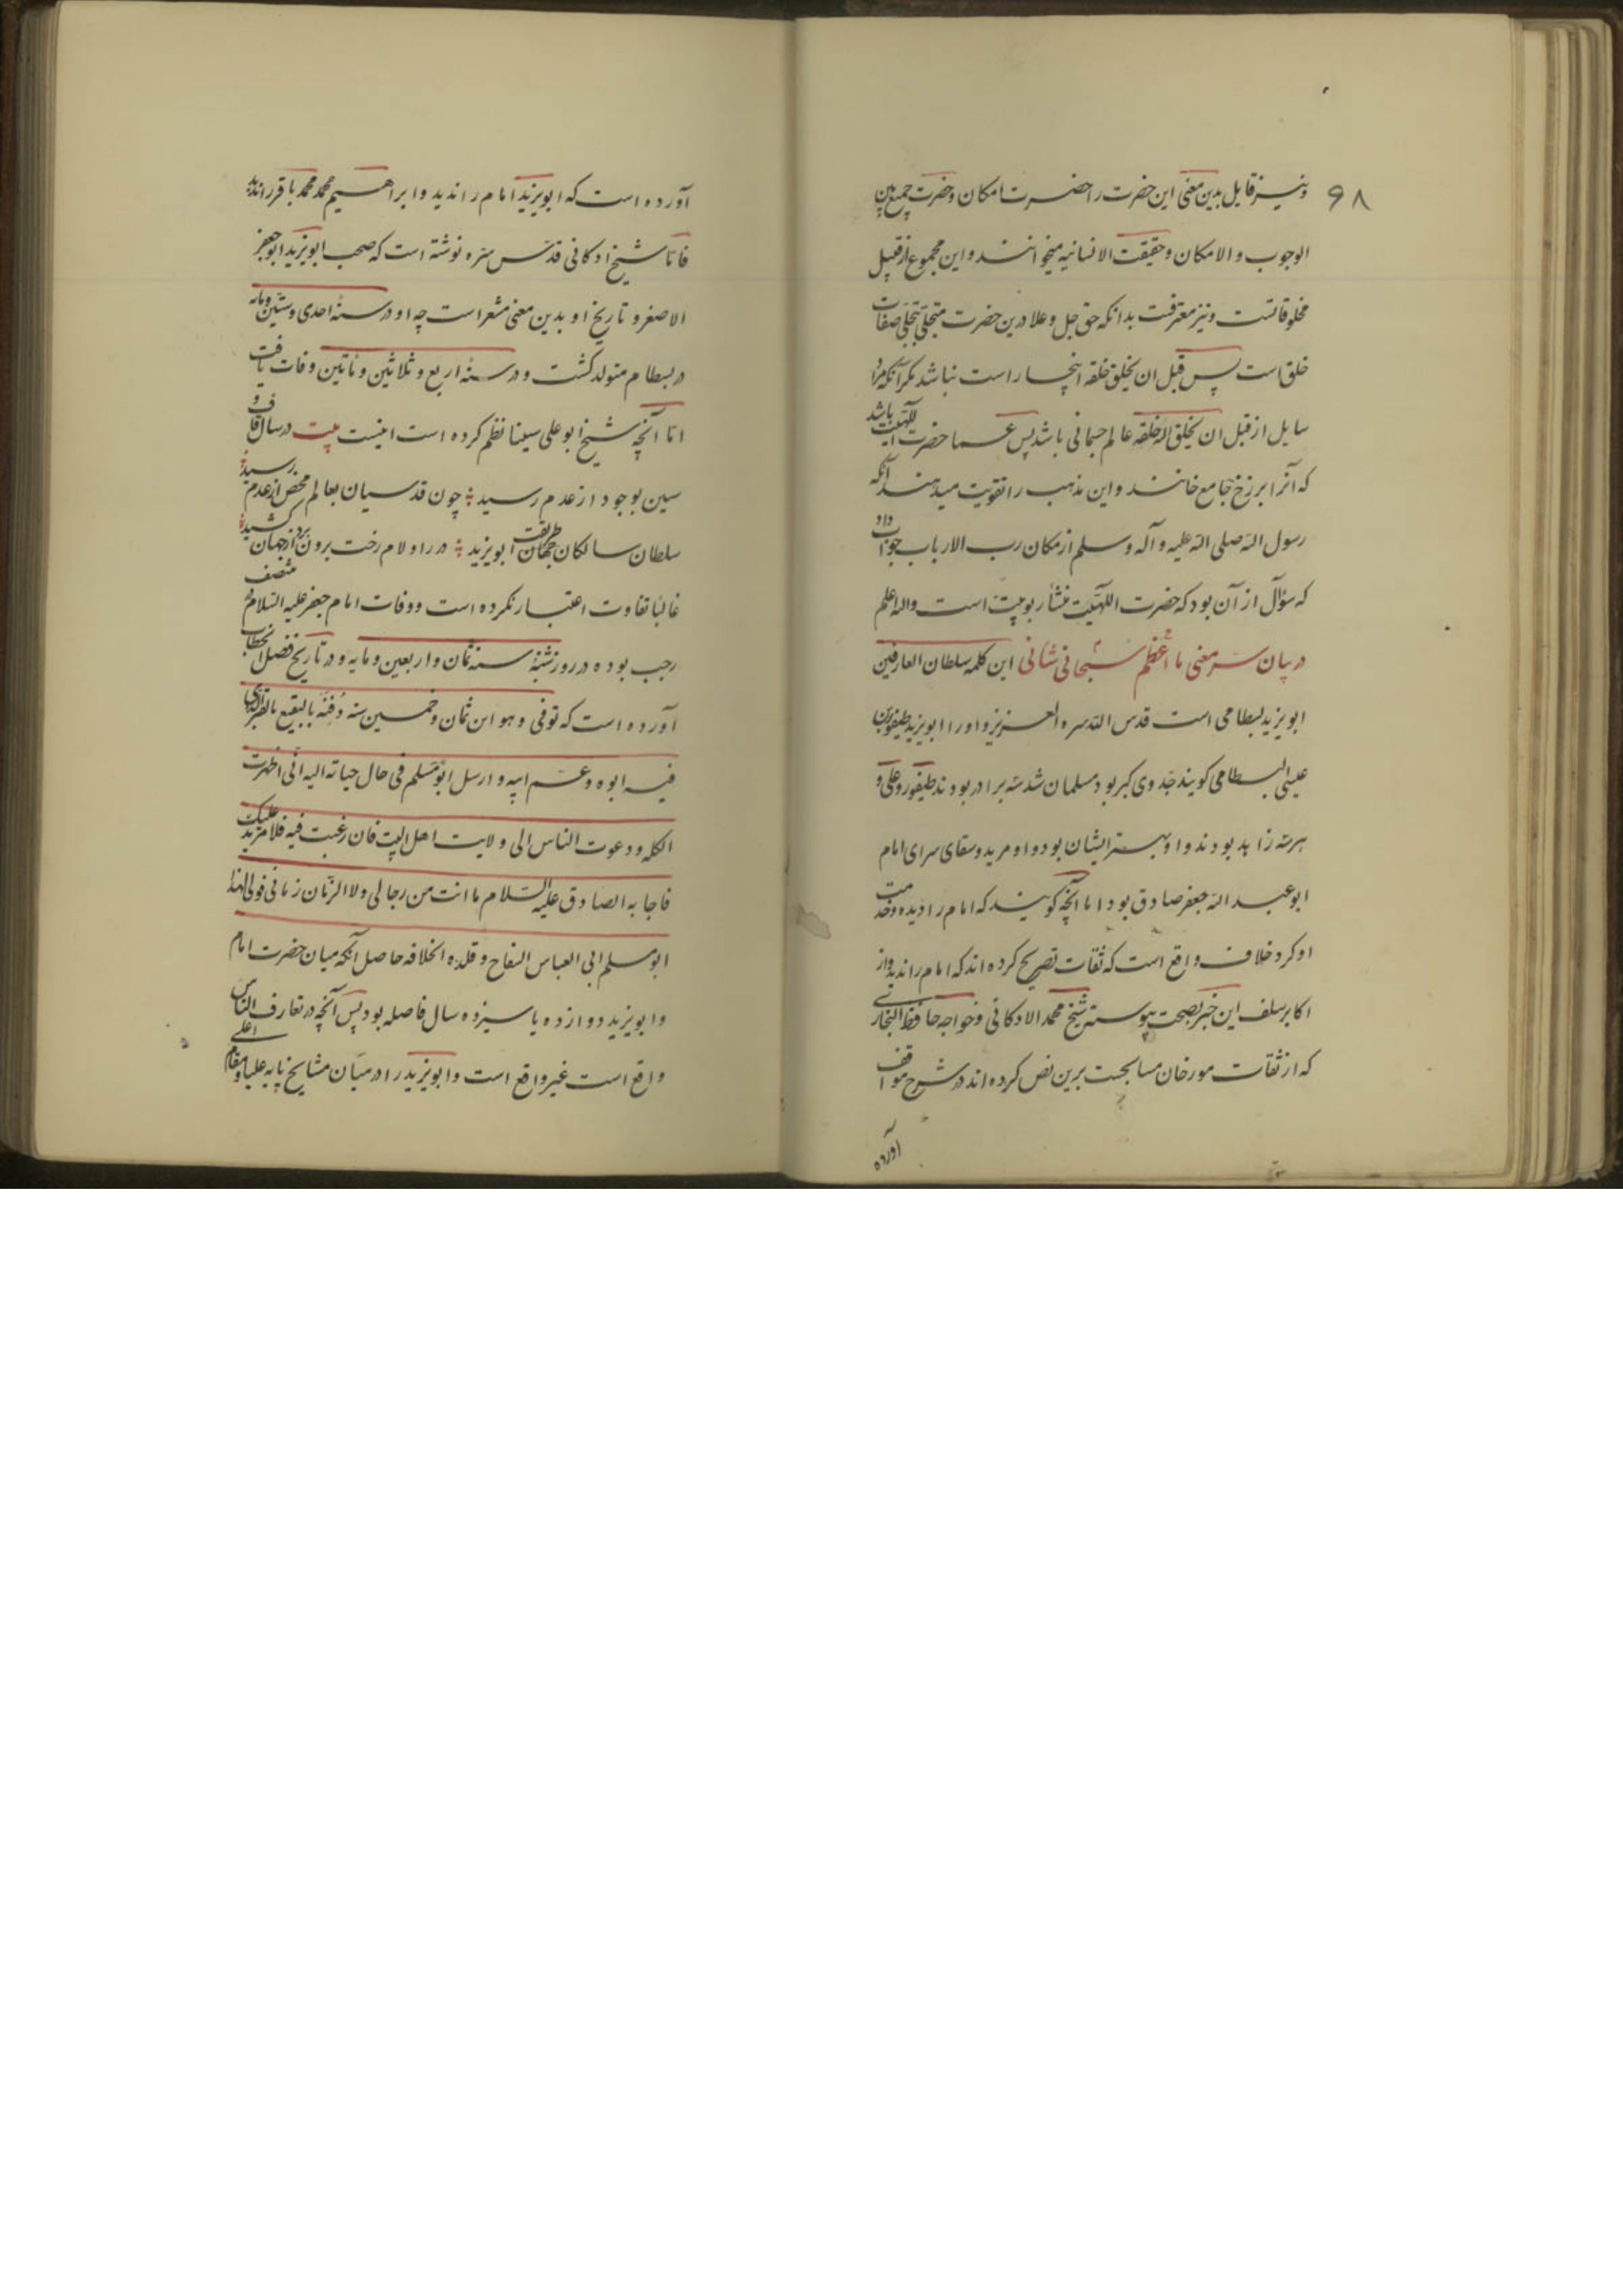 ۶۸
و نیز قایل بدین معنی این حضرت را حضرت امکان و حضرت جمع بین
الوجوب و الامکان و حقیقت الانسانیه میخوانند و این مجموع از قبیل
مخلوقاتست و نیز معترفست بدانکه حق جل و علا درین حضرت متجلی بتجلی صفات
خلق است پس قبل ان یخلق خلقه اینجا راست نباشد مگر آنکه مراد
سایل از قبل ان یخلق الله خلقه عالم جسمانی باشد پس عما حضرت اللهیت باشد
که آنرا برزخ جامع خوانند و این مذهب را تقویت میدهند آنکه
رسول الله صلی الله علیه و آله و سلم از مکان رب الارباب جواب داد
که سؤال از آن بود که حضرت اللهیت منشأ ربوبیت است والله اعلم
در بیان سر معنی ما اعظم شانی سبحانی این کلمه سلطان العارفین
ابویزید بسطامی است قدس الله سره العزیز و او را ابویزید طیفور بن
عیسی البسطامی گویند جد وی گبر بود مسلمان شد سه برادر بودند طیفور و علی و
هر سه زاهد بودند و او بهترین ایشان بود و او مرید و سقای سرای امام
ابو عبد الله جعفر صادق بود اما آنچه گویند که امام را دیده و خدمت
او کرد خلاف واقع است که ثقات تصریح کرده اند که امام را ندید و از
اکابر سلف این خبر بصحت پیوسته شیخ محمد الادکانی و خواجه حافظ البخاری
که از ثقات مورخان برین نص کرده اند در شرح مواقف
آورده
آورده است که ابویزید امام را ندید و ابراهیم محمد محمد باقر را ندید
فاما شیخ ادکانی قدس سره نوشته است که صحب ابویزید ابوجعفر
الاصغر و تاریخ او بدین معنی مشعر است چه او در سنه احدی و ستین و مایه
در بسطام متولد گشت و در سنه اربع و ثلاثین و مأتین وفات یافت
اما آنچه شیخ ابو علی سینا نظم کرده است اینست بیت در سال قاف و
سین بوجود از عدم رسید چون قدسیان بعالم محض از عدم رسید
سلطان سالکان طریقت ابویزید در را و لام رخت برون برد از جهان کشید
غالبا تفاوت اعتبار نکرده است و وفات امام جعفر علیه السلام منتصف
رجب بوده در روز شنبه سنه ثمان و اربعین و مایه و در تاریخ فصل الخطاب
آورده است که توفی و هو ابن ثمان و خمسین سنه و دفنه بالبقیع بالقبر الذی
فیه ابوه و عم ابیه و ارسل ابو مسلم فی حال حیاته الیه انی اظهرت
الکلمه و دعوت الناس الی ولایت اهل البیت فان رغبت فیه فلا مزید علیک
فاجابه الصادق علیه السلام ما انت من رجالی و لا الزمان زمانی فولی لهذا
ابو مسلم ابی العباس السفاح و قلده الخلافه حاصل آنکه میان حضرت امام
و ابویزید دوازده یا سیزده سال فاصله بود پس آنچه در تعارف الناس
واقع است غیر واقع است و ابویزید را در میان مشایخ پایه علیا و مقام اعلی